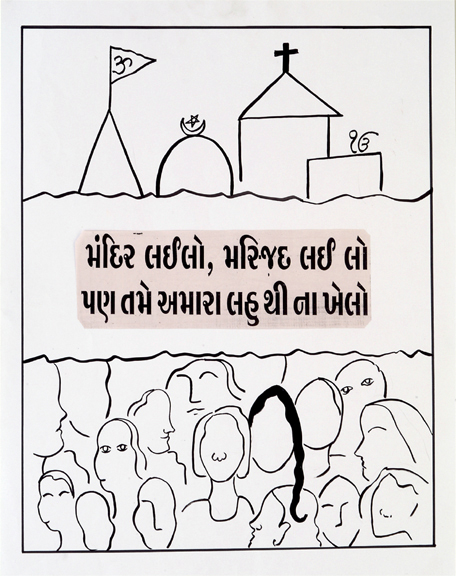 ૐ
ੴ
મંદિર લઈલો, મસ્જિદ લઈ લો
પણ તમે અમારા લહુ થી ના ખેલો